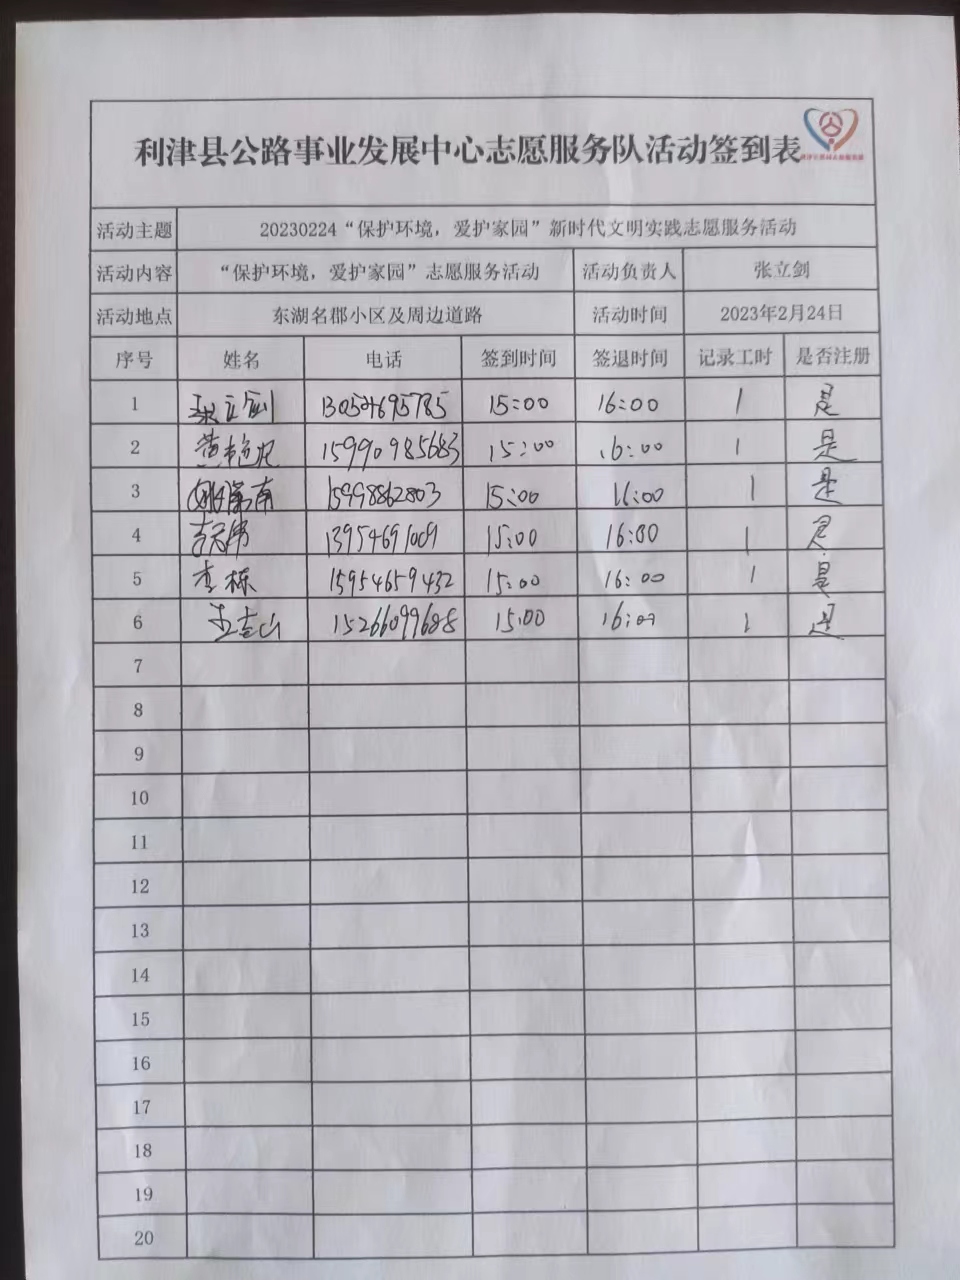 利津县公路事业发展中心志愿服务队活动签到表
活动主题 20230224“保护环境，爱护家园”新时代文明实践志愿服务活动
活动内容 “保护环境，爱护家园”志愿服务活动 活动负责人 张立剑
活动地点 东湖名郡小区及周边道路 活动时间 2023年2月24日
序号 姓名 电话 签到时间 签退时间 记录工时 是否注册
1 张立剑 13054695785 15:00 16:00 1 是
2 15990985683 15:00 16:00 1 是
3 15998862803 15:00 16:00 1 是
4 13954691009 15:00 16:00 1 是
5 李栋 15954659432 15:00 16:00 1 是
6 15266099688 15:00 16:00 1 是
7
8
9
10
11
12
13
14
15
16
17
18
19
20